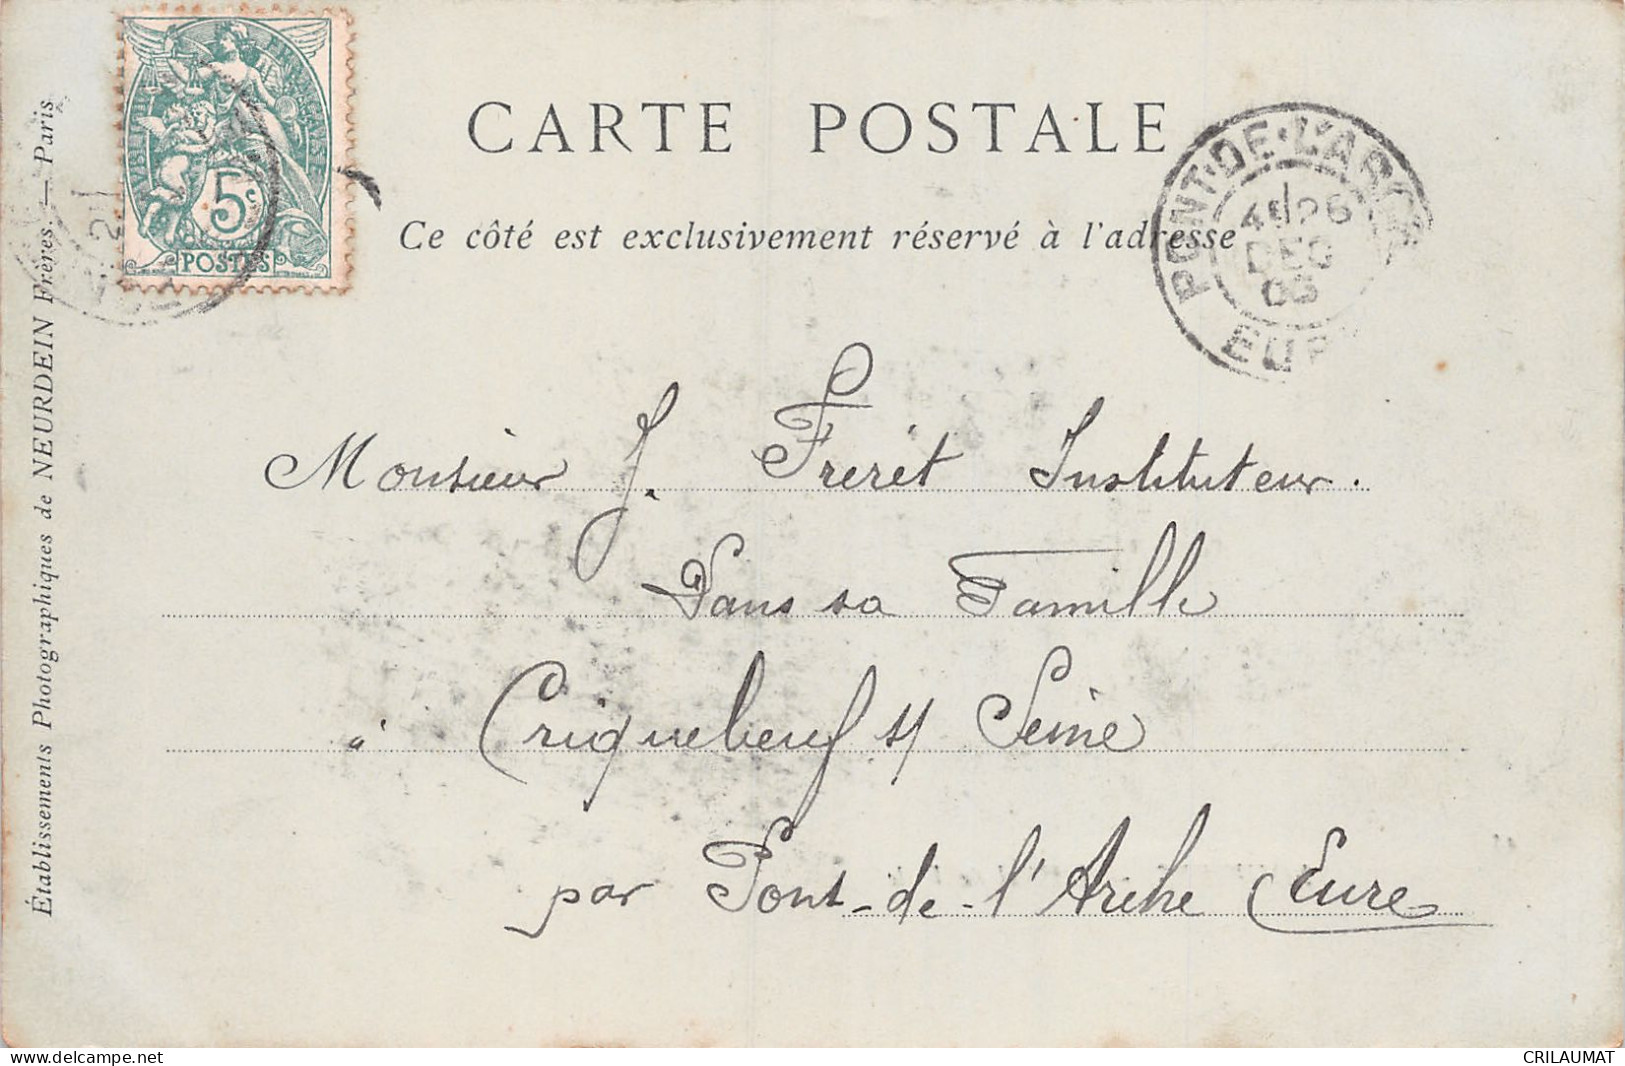 CARTE POSTALE
Ce côté est exclusivement réservé à l'adresse
RÉPUBLIQUE FRANÇAISE
5c
POSTES
PONT-DE-L'ARCHE
26
DEC
03
EURE
Monsieur J. Frerét Instituteur.
Dans sa Famille
à Criquebeuf s/ Seine
par Pont-de-l'Arche Eure
Établissements Photographiques de NEURDEIN Frères. — Paris
www.delcampe.net
CRILAUMAT